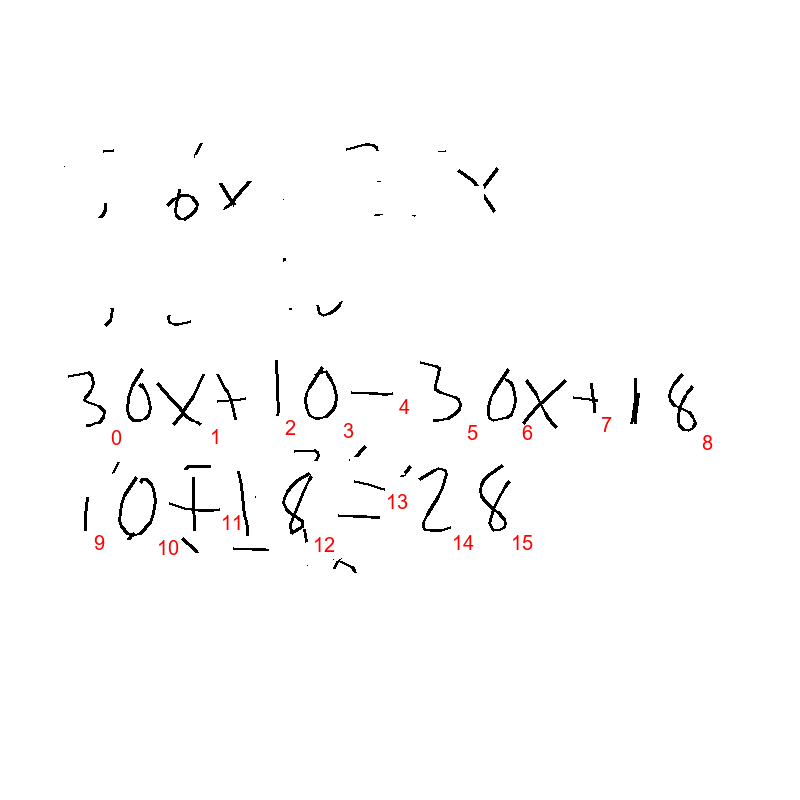 30x+10-30x+18
0 1 2 3 4 5 6 7 8
10+18=28
9 10 11 12 13 14 15